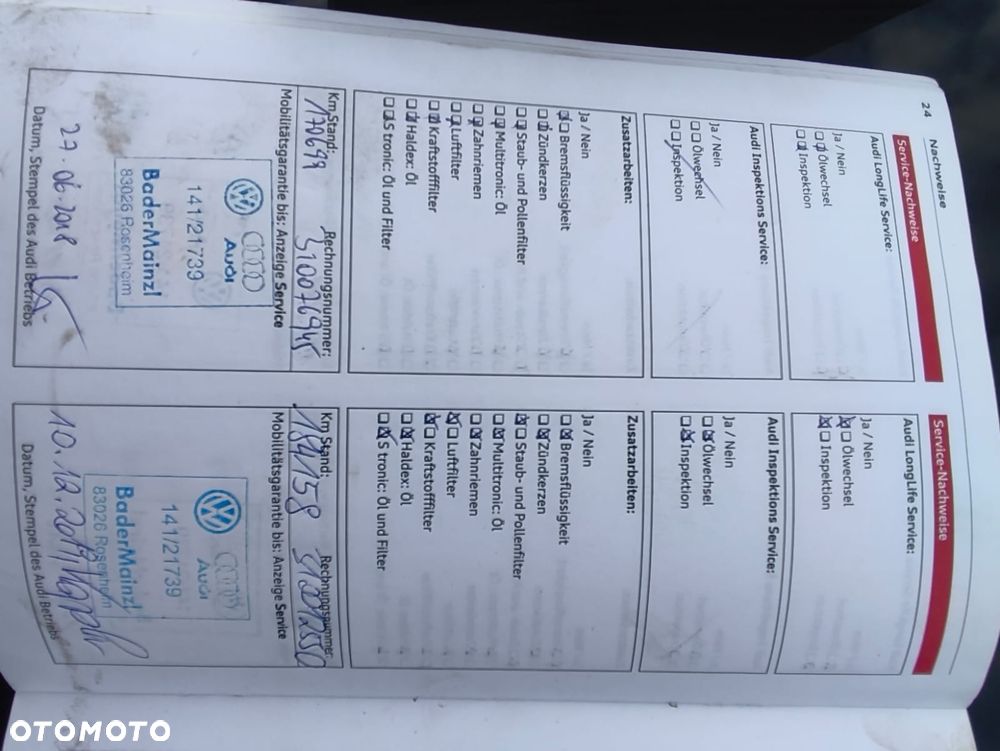 24
Nachweise
Service-Nachweise
Audi LongLife Service:
Ja / Nein
Ölwechsel
Inspektion
Audi Inspektions Service:
Ja / Nein
Ölwechsel
Inspektion
Zusatzarbeiten:
Ja / Nein
Bremsflüssigkeit
Zündkerzen
Staub- und Pollenfilter
Multitronic: Öl
Zahnriemen
Luftfilter
Kraftstofffilter
Haldex: Öl
S tronic: Öl und Filter
Km Stand: Rechnungsnummer:
170699 310076945
Mobilitätsgarantie bis: Anzeige Service
Audi
141/21739
BaderMainzl
83026 Rosenheim
27.06.2018
Datum, Stempel des Audi Betriebs
Service-Nachweise
Audi LongLife Service:
Ja / Nein
Ölwechsel
Inspektion
Audi Inspektions Service:
Ja / Nein
Ölwechsel
Inspektion
Zusatzarbeiten:
Ja / Nein
Bremsflüssigkeit
Zündkerzen
Staub- und Pollenfilter
Multitronic: Öl
Zahnriemen
Luftfilter
Kraftstofffilter
Haldex: Öl
S tronic: Öl und Filter
Km Stand: Rechnungsnummer:
Mobilitätsgarantie bis: Anzeige Service
Audi
141/21739
BaderMainzl
83026 Rosenheim
10.12.
Datum, Stempel des Audi Betriebs
OTOMOTO